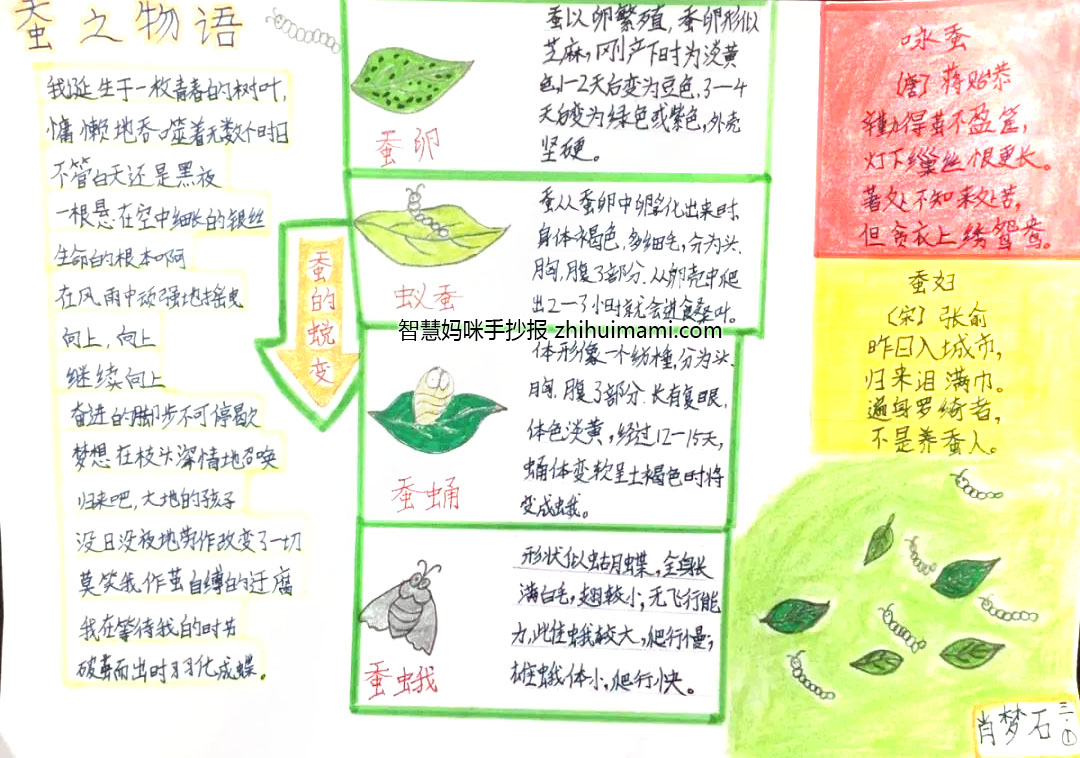 蚕之物语
我诞生于一枚青春的树叶,
慵懒地吞噬着无数个时日
不管白天还是黑夜
一根悬在空中细长的银丝
生命的根本啊
在风雨中顽强地摇曳
向上,向上
继续向上
奋进的脚步不可停歇
梦想在枝头深情地召唤
归来吧,大地的孩子
没日没夜地劳作改变了一切
莫笑我作茧自缚的迂腐
我在等待我的时节
破茧而出时羽化成蝶。
蚕的蜕变
蚕以卵繁殖,蚕卵形似
芝麻,刚产下时为淡黄
色,1-2天后变为豆色,3—4
天后变为绿色或紫色,外壳
坚硬。
蚕卵
蚕从蚕卵中孵化出来时,
身体褐色,多细毛,分为头、
胸,腹了部分,从卵壳中爬
出2—3小时就会进食桑叶。
蚁蚕
智慧妈咪手抄报 zhihuimami.com
体形像一个纺锤,分为头、
胸,腹了部分.长有复眼,
体色淡黄,经过12—15天,
蛹体变软呈土褐色时将
变成蛾。
蚕蛹
形状似蝴蝶,全身长
满白毛,翅较小,无飞行能
力,此雌蛾较大,爬行慢;
雄蛾体小,爬行快。
蚕蛾
咏蚕
(唐)蒋贻恭
辛勤得茧不盈筐,
灯下缫丝恨更长。
著处不知来处苦,
但贪衣上绣鸳鸯。
蚕妇
(宋)张俞
昨日入城市,
归来泪满巾。
遍身罗绮者,
不是养蚕人。
肖梦石
三·①